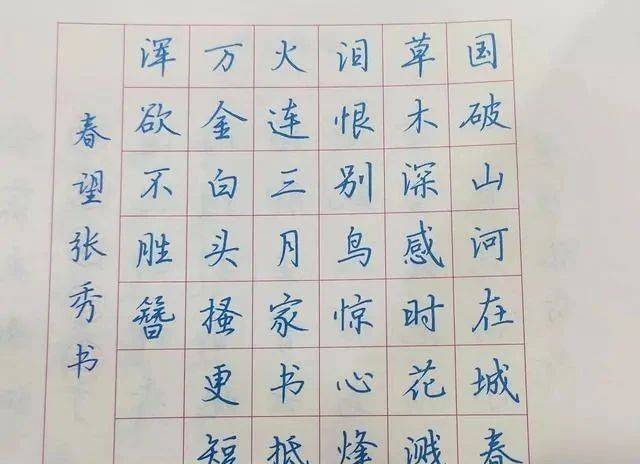 国破山河在城春
草木深感时花溅
泪恨别鸟惊心烽
火连三月家书抵
万金白头搔更短
浑欲不胜簪
春望张秀书